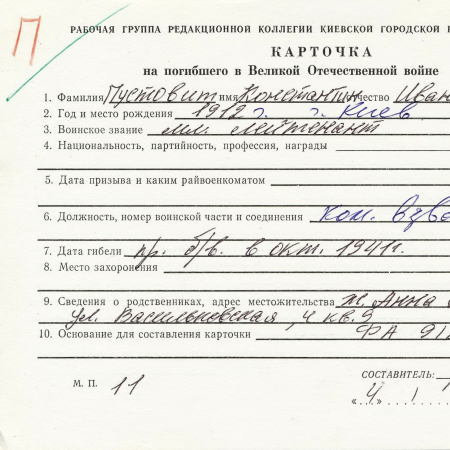 П
РАБОЧАЯ ГРУППА РЕДАКЦИОННОЙ КОЛЛЕГИИ КИЕВСКОЙ ГОРОДСКОЙ
КАРТОЧКА
на погибшего в Великой Отечественной войне
1. Фамилия Пустовит имя Константин отчество Иван
2. Год и место рождения 1912 г. г. Киев
3. Воинское звание мл. лейтенант
4. Национальность, партийность, профессия, награды
5. Дата призыва и каким райвоенкоматом
6. Должность, номер воинской части и соединения ком. взво
7. Дата гибели пр. б/в. в окт. 1941 г.
8. Место захоронения
9. Сведения о родственниках, адрес местожительства ж. Анна
ул. Васильковская, 4 кв. 9
10. Основание для составления карточки ФА 912
СОСТАВИТЕЛЬ:
М. П. 11
„4"